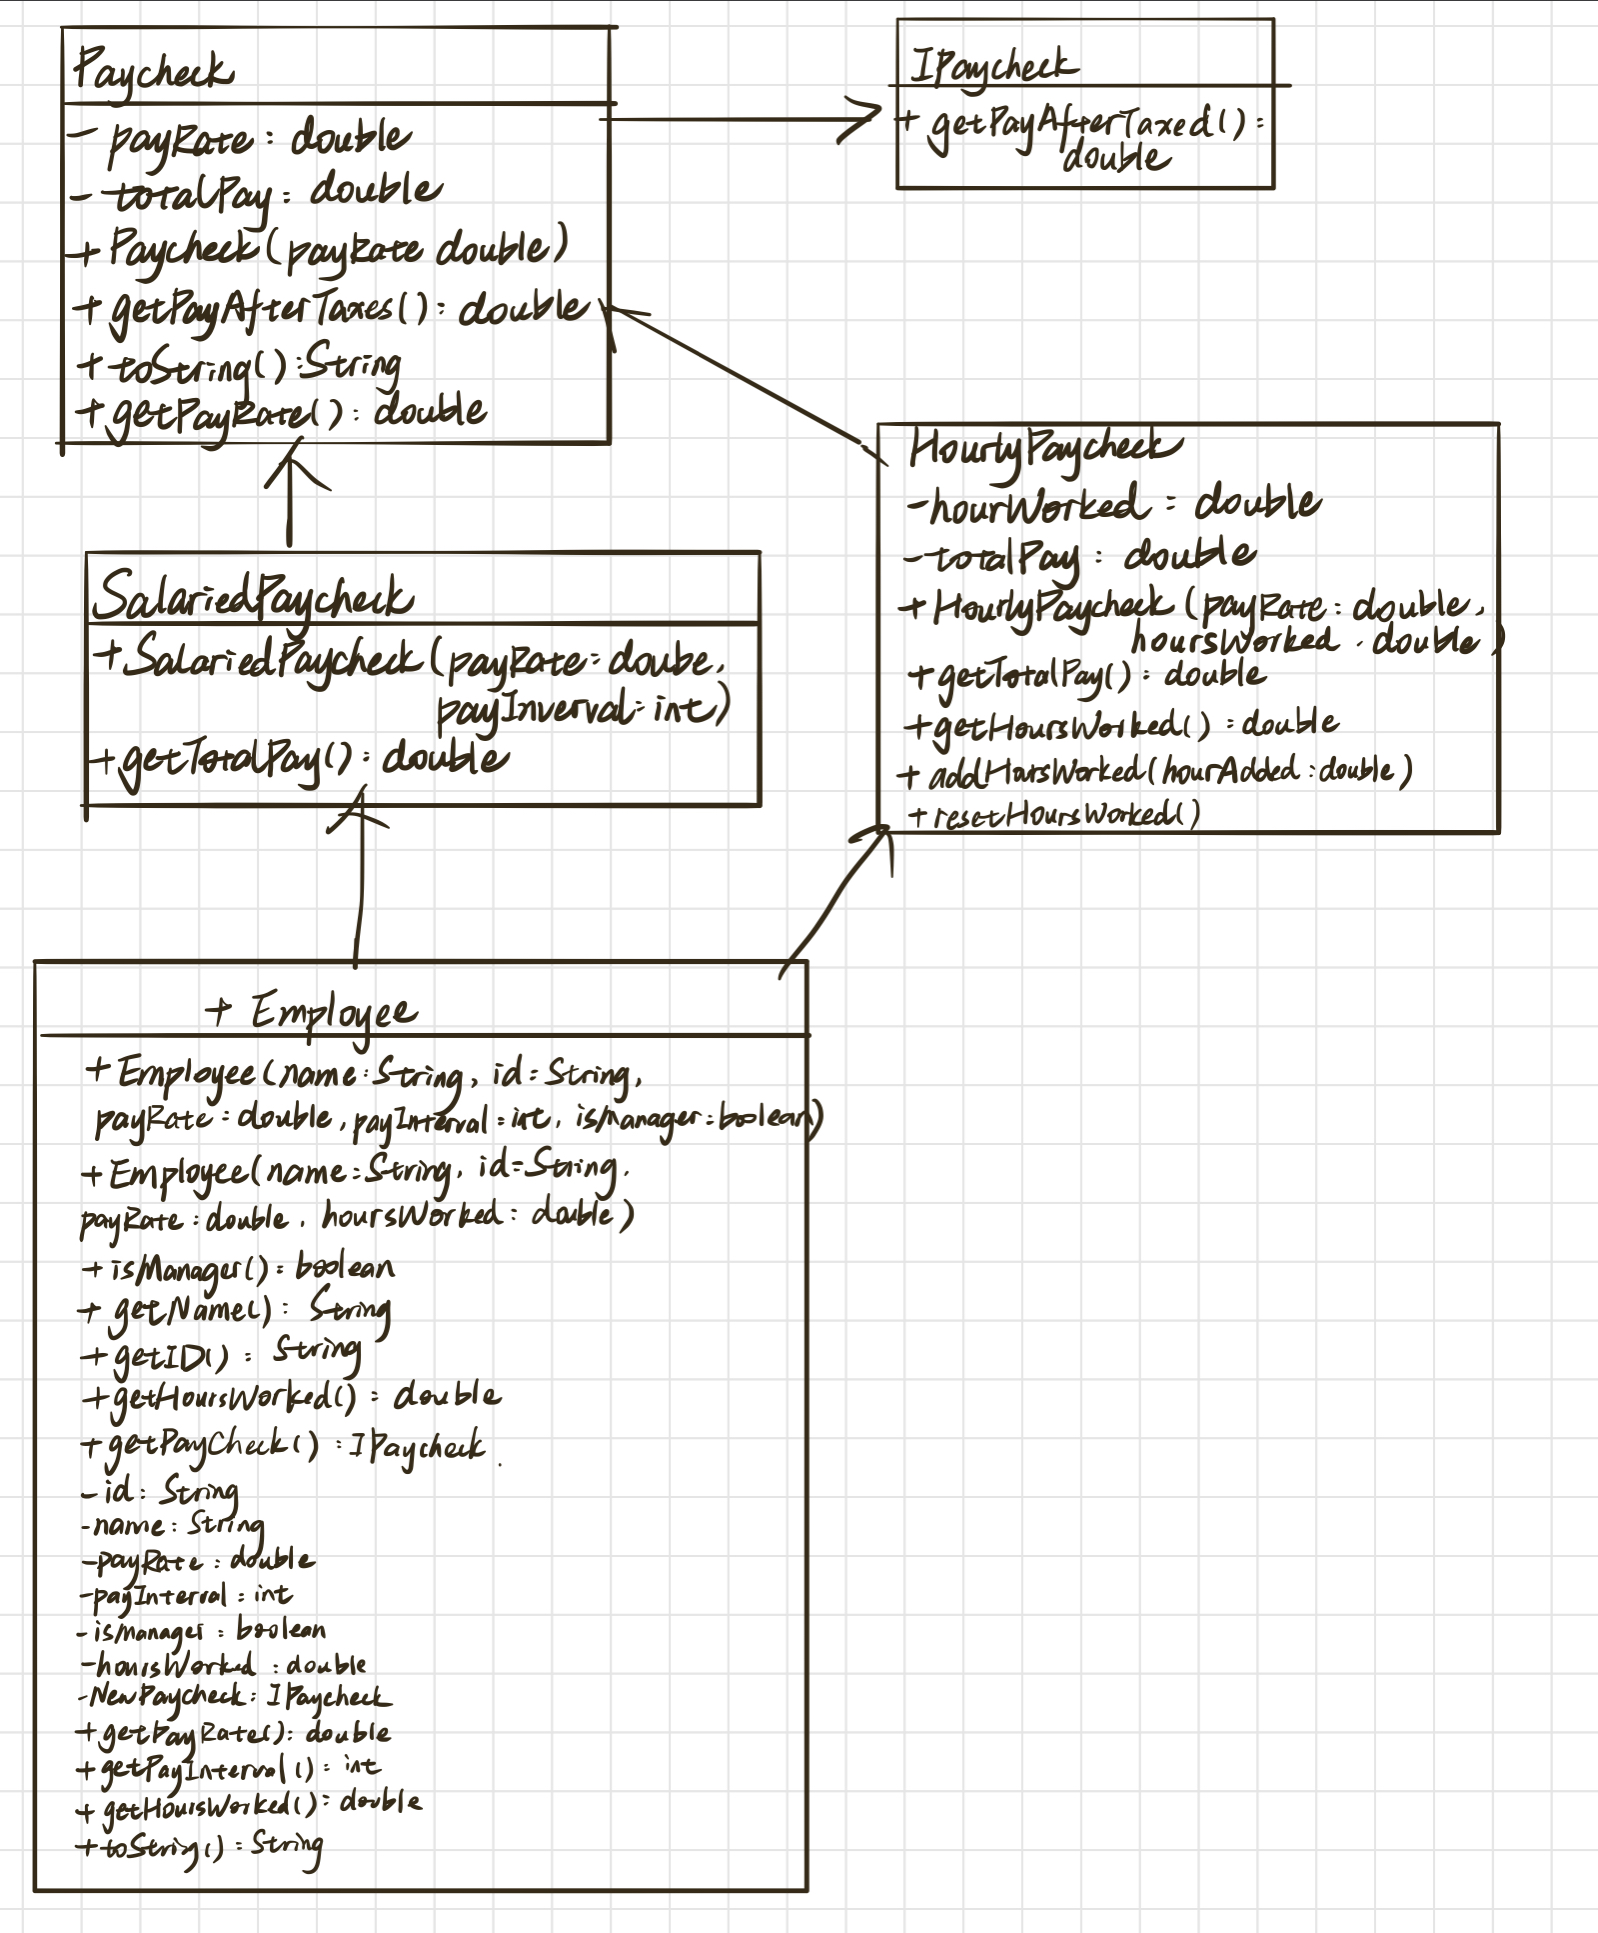 Paycheck
- payRate : double
- totalPay : double
+ Paycheck (payRate double)
+ getPayAfterTaxes() : double
+ toString() : String
+ getPayRate() : double
IPaycheck
+ getPayAfterTaxed() :
double
SalariedPaycheck
+ SalariedPaycheck (payRate : doube,
payInverval : int)
+ getTotalPay() : double
HourlyPaycheck
- hourWorked : double
- totalPay : double
+ HourlyPaycheck (payRate : double,
hoursWorked : double)
+ getTotalPay() : double
+ getHoursWorked() : double
+ addHoursWorked(hourAdded : double)
+ resetHoursWorked()
+ Employee
+ Employee (name : String, id : String,
payRate : double, payInterval : int, isManager : boolean)
+ Employee (name : String, id : String,
payRate : double, hoursWorked : double)
+ isManager() : boolean
+ getName() : String
+ getID() : String
+ getHoursWorked() : double
+ getPayCheck() : IPaycheck
- id : String
- name : String
- payRate : double
- payInterval : int
- isManager : boolean
- hoursWorked : double
- NewPaycheck : IPaycheck
+ getPayRate() : double
+ getPayInterval() : int
+ getHoursWorked() : double
+ toString() : String